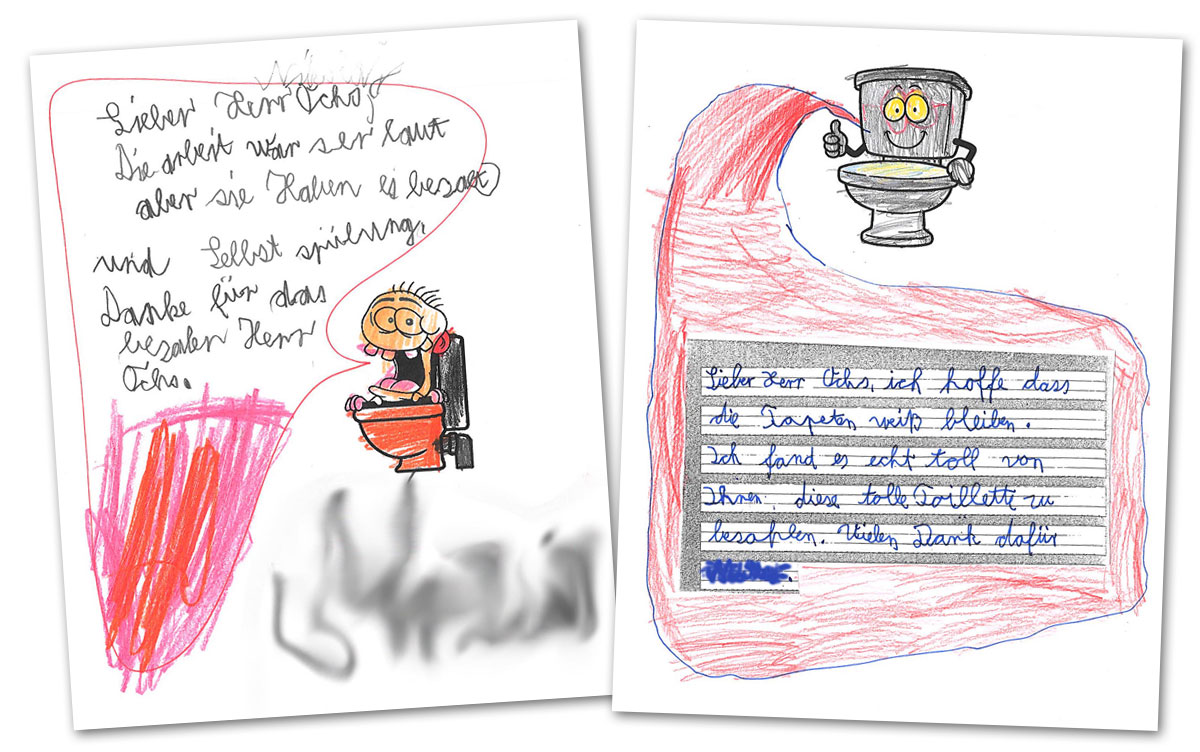 Lieber Herr Ochs,
Die arbeit war ser laut
aber sie Haben es bezalt
und Selbst spülung.
Danke für das
bezalen Herr
Ochs.
Lieber Herr Ochs, ich hoffe dass
die Tapeten weiß bleiben.
Ich fand es echt toll von
Ihnen, diese tolle Toillette zu
besahlen. Vielen Dank dafür